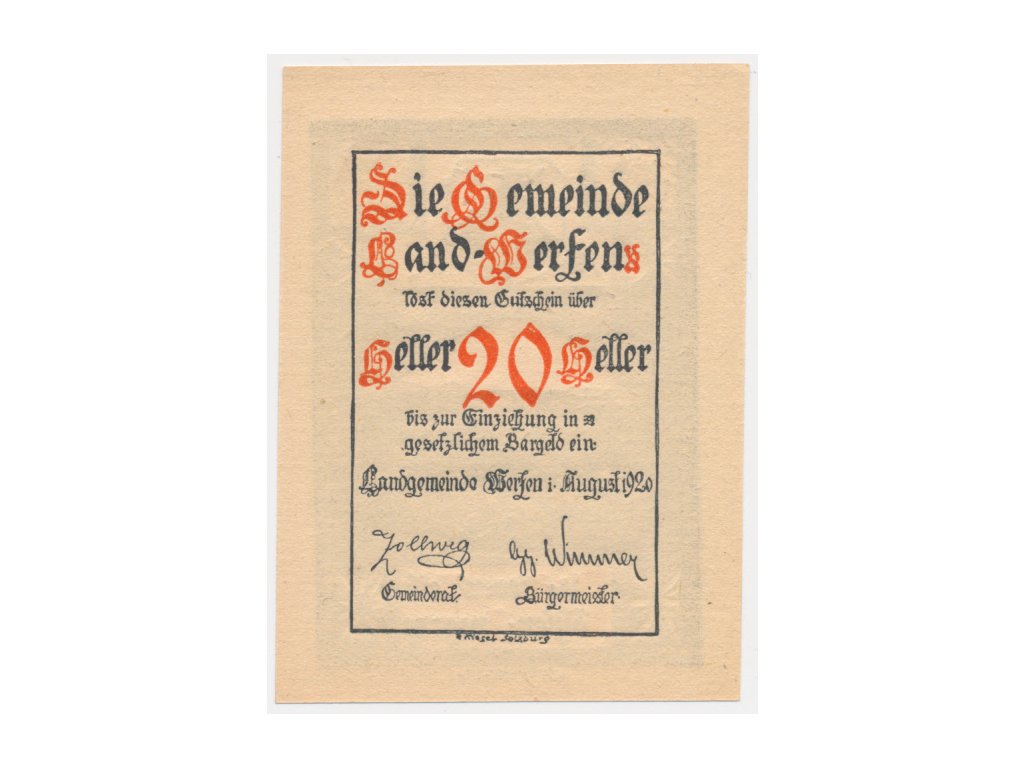 Die Gemeinde
Land-Werfen
löst diesen Gutschein über
Heller 20 Heller
bis zur Einziehung in
gesetzlichem Bargeld ein.
Landgemeinde Werfen i. August 1920
Zollweg Wimmer
Gemeinderat. Bürgermeister.
Salzburg